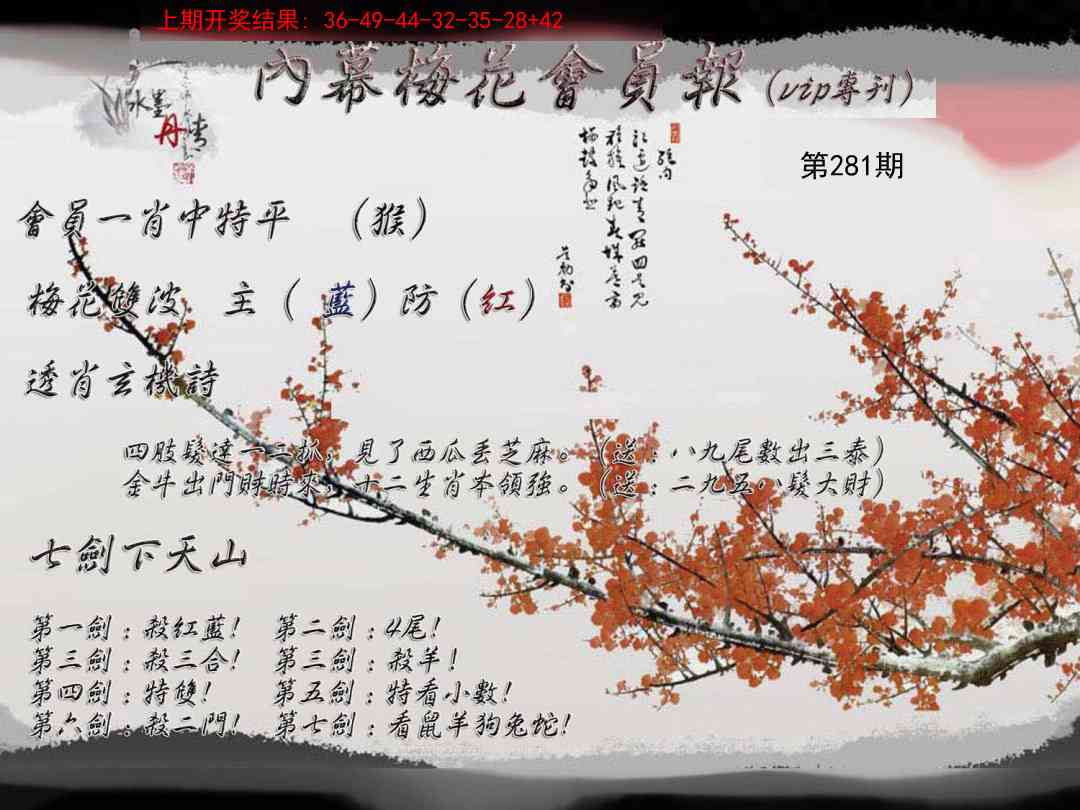 上期开奖结果: 36-49-44-32-35-28+42
內幕梅花會員報(vip專刊)
水墨
丹青
第281期
會員一肖中特平 (猴)
梅花雙波 主(藍)防(紅)
透肖玄機詩
四肢髮達一二抓,見了西瓜丟芝麻。(送:八九尾數出三泰)
金牛出門財時來,十二生肖本領強。(送:二九五八髮大財)
七劍下天山
第一劍:殺紅藍! 第二劍:4尾!
第三劍:殺三合! 第三劍:殺羊!
第四劍:特雙! 第五劍:特看小數!
第六劍:殺二門! 第七劍:看鼠羊狗兔蛇!